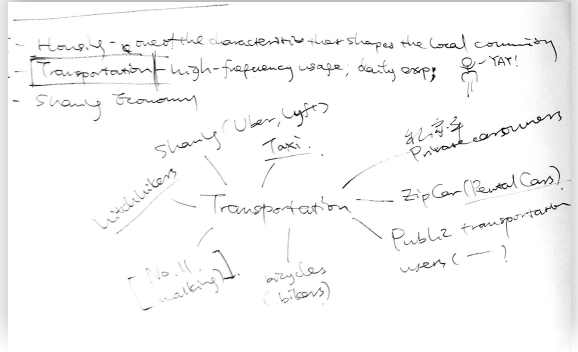 - Housing - one of the characteristics that shapes the local community
- Transportation - high-frequency usage; daily exp;
- YAY!
- Sharing Economy
Sharing (Uber, Lyft)
Taxi.
Private car owners
hitchhikers
Transportation
ZipCar (Rental Cars)
Public transportation
users ( — )
[No. 11.
walking].
bicycles
(bikers)